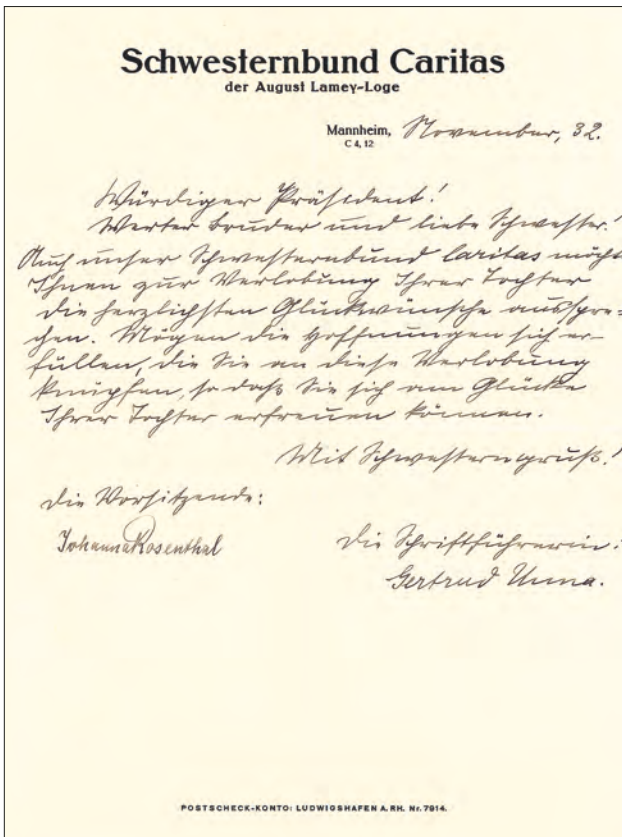 Schwesternbund Caritas
der August Lamey-Loge
Mannheim, November, 32.
C 4, 12
Würdiger Präsident!
Werter Bruder und liebe Schwester!
Auch unser Schwesternbund Caritas möcht
Ihnen zur Verlobung Ihrer Tochter
die herzlichsten Glückwünsche ausspre=
chen. Mögen die Hoffnungen sich er-
füllen, die Sie an diese Verlobung
knüpfen, so daß Sie sich am Glücke
Ihrer Tochter erfreuen können.
Mit Schwesterngruß!
Die Vorsitzende:
Johanna Rosenthal
Die Schriftführerin:
Gertrud Unna.
POSTSCHECK-KONTO: LUDWIGSHAFEN A. RH. Nr. 7914.